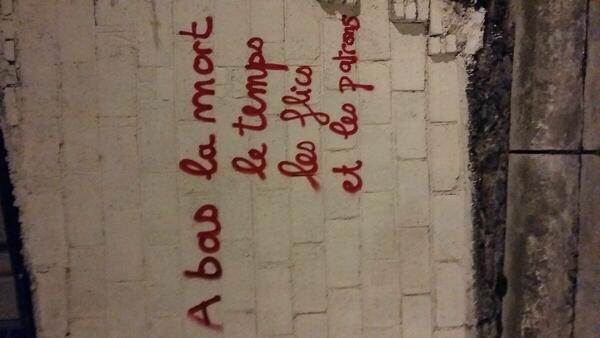 A bas la mort
le temps
les flics
et les patrons